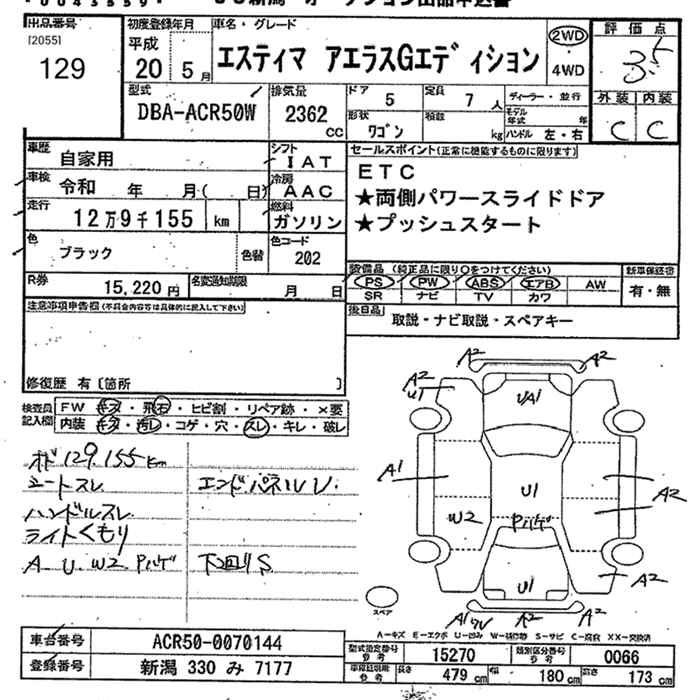 出品番号
[2055]
129
初度登録年月
平成
20年 5月
車名・グレード
エスティマ アエラスGエディション
2WD
・
4WD
評価点
3.5
外装 内装
C C
型式
DBA-ACR50W
排気量
2362 CC
ドア
5
定員
7 人
形状
ワゴン
積数
kg
ディーラー・並行
モデル年式 年
ハンドル 左・右
車歴
自家用
シフト
IAT
車検
令和 年 月( 日)
冷房
AAC
走行
12万9千155 km
燃料
ガソリン
色
ブラック
色替
色コード
202
R券
15,220円
名変通知期限
月 日
セールスポイント(正常に機能するものに限ります)
ETC
★両側パワースライドドア
★プッシュスタート
装備品 (純正品に限り○をつけてください)
新車保証書
PS PW ABS エアB AW
SR ナビ TV カワ
有・無
後日品
取説・ナビ取説・スペアキー
注意事項申告欄(不具合内容等は具体的に記入して下さい)
修復歴 有〔箇所 〕
検査員記入欄
FW キズ・飛石・ヒビ割・リペア跡・×要
内装 キタ・汚レ・コゲ・穴・スレ・キレ・破レ
オド129.155km
シートスレ
エンドパネルU
ハンドルスレ
ライトくもり
A U W2 Pハゲ
下回りS
A2 A2
A2
U1
U/A1
A1
A2
U1
W2
Pハゲ
A2
U1
A1 ワレ A2 A2
スペア
A-キズ E-エクボ U-凹み W-補修跡 S-サビ C-腐食 XX-交換済
車台番号
ACR50-0070144
登録番号
新潟 330 み 7177
型式指定番号
参考
15270
類別区分番号
参考
0066
車検証記載
参考
長さ
479 cm
幅
180 cm
高さ
173 cm